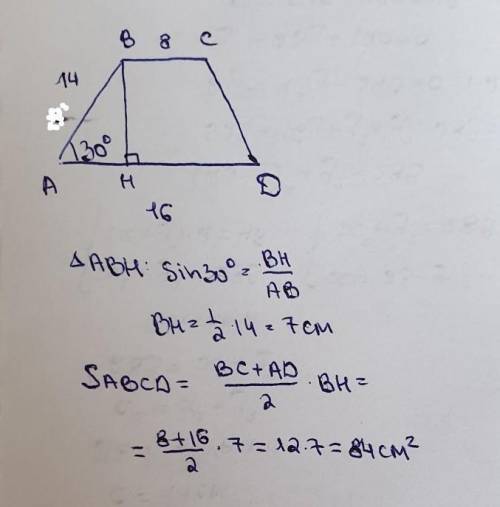 B 8 C
14
30°
A H D
16
△ABH: sin30° = BH/AB
BH = 1/2 · 14 = 7 см
SABCD = (BC+AD)/2 · BH =
= (8+16)/2 · 7 = 12·7 = 84 см²